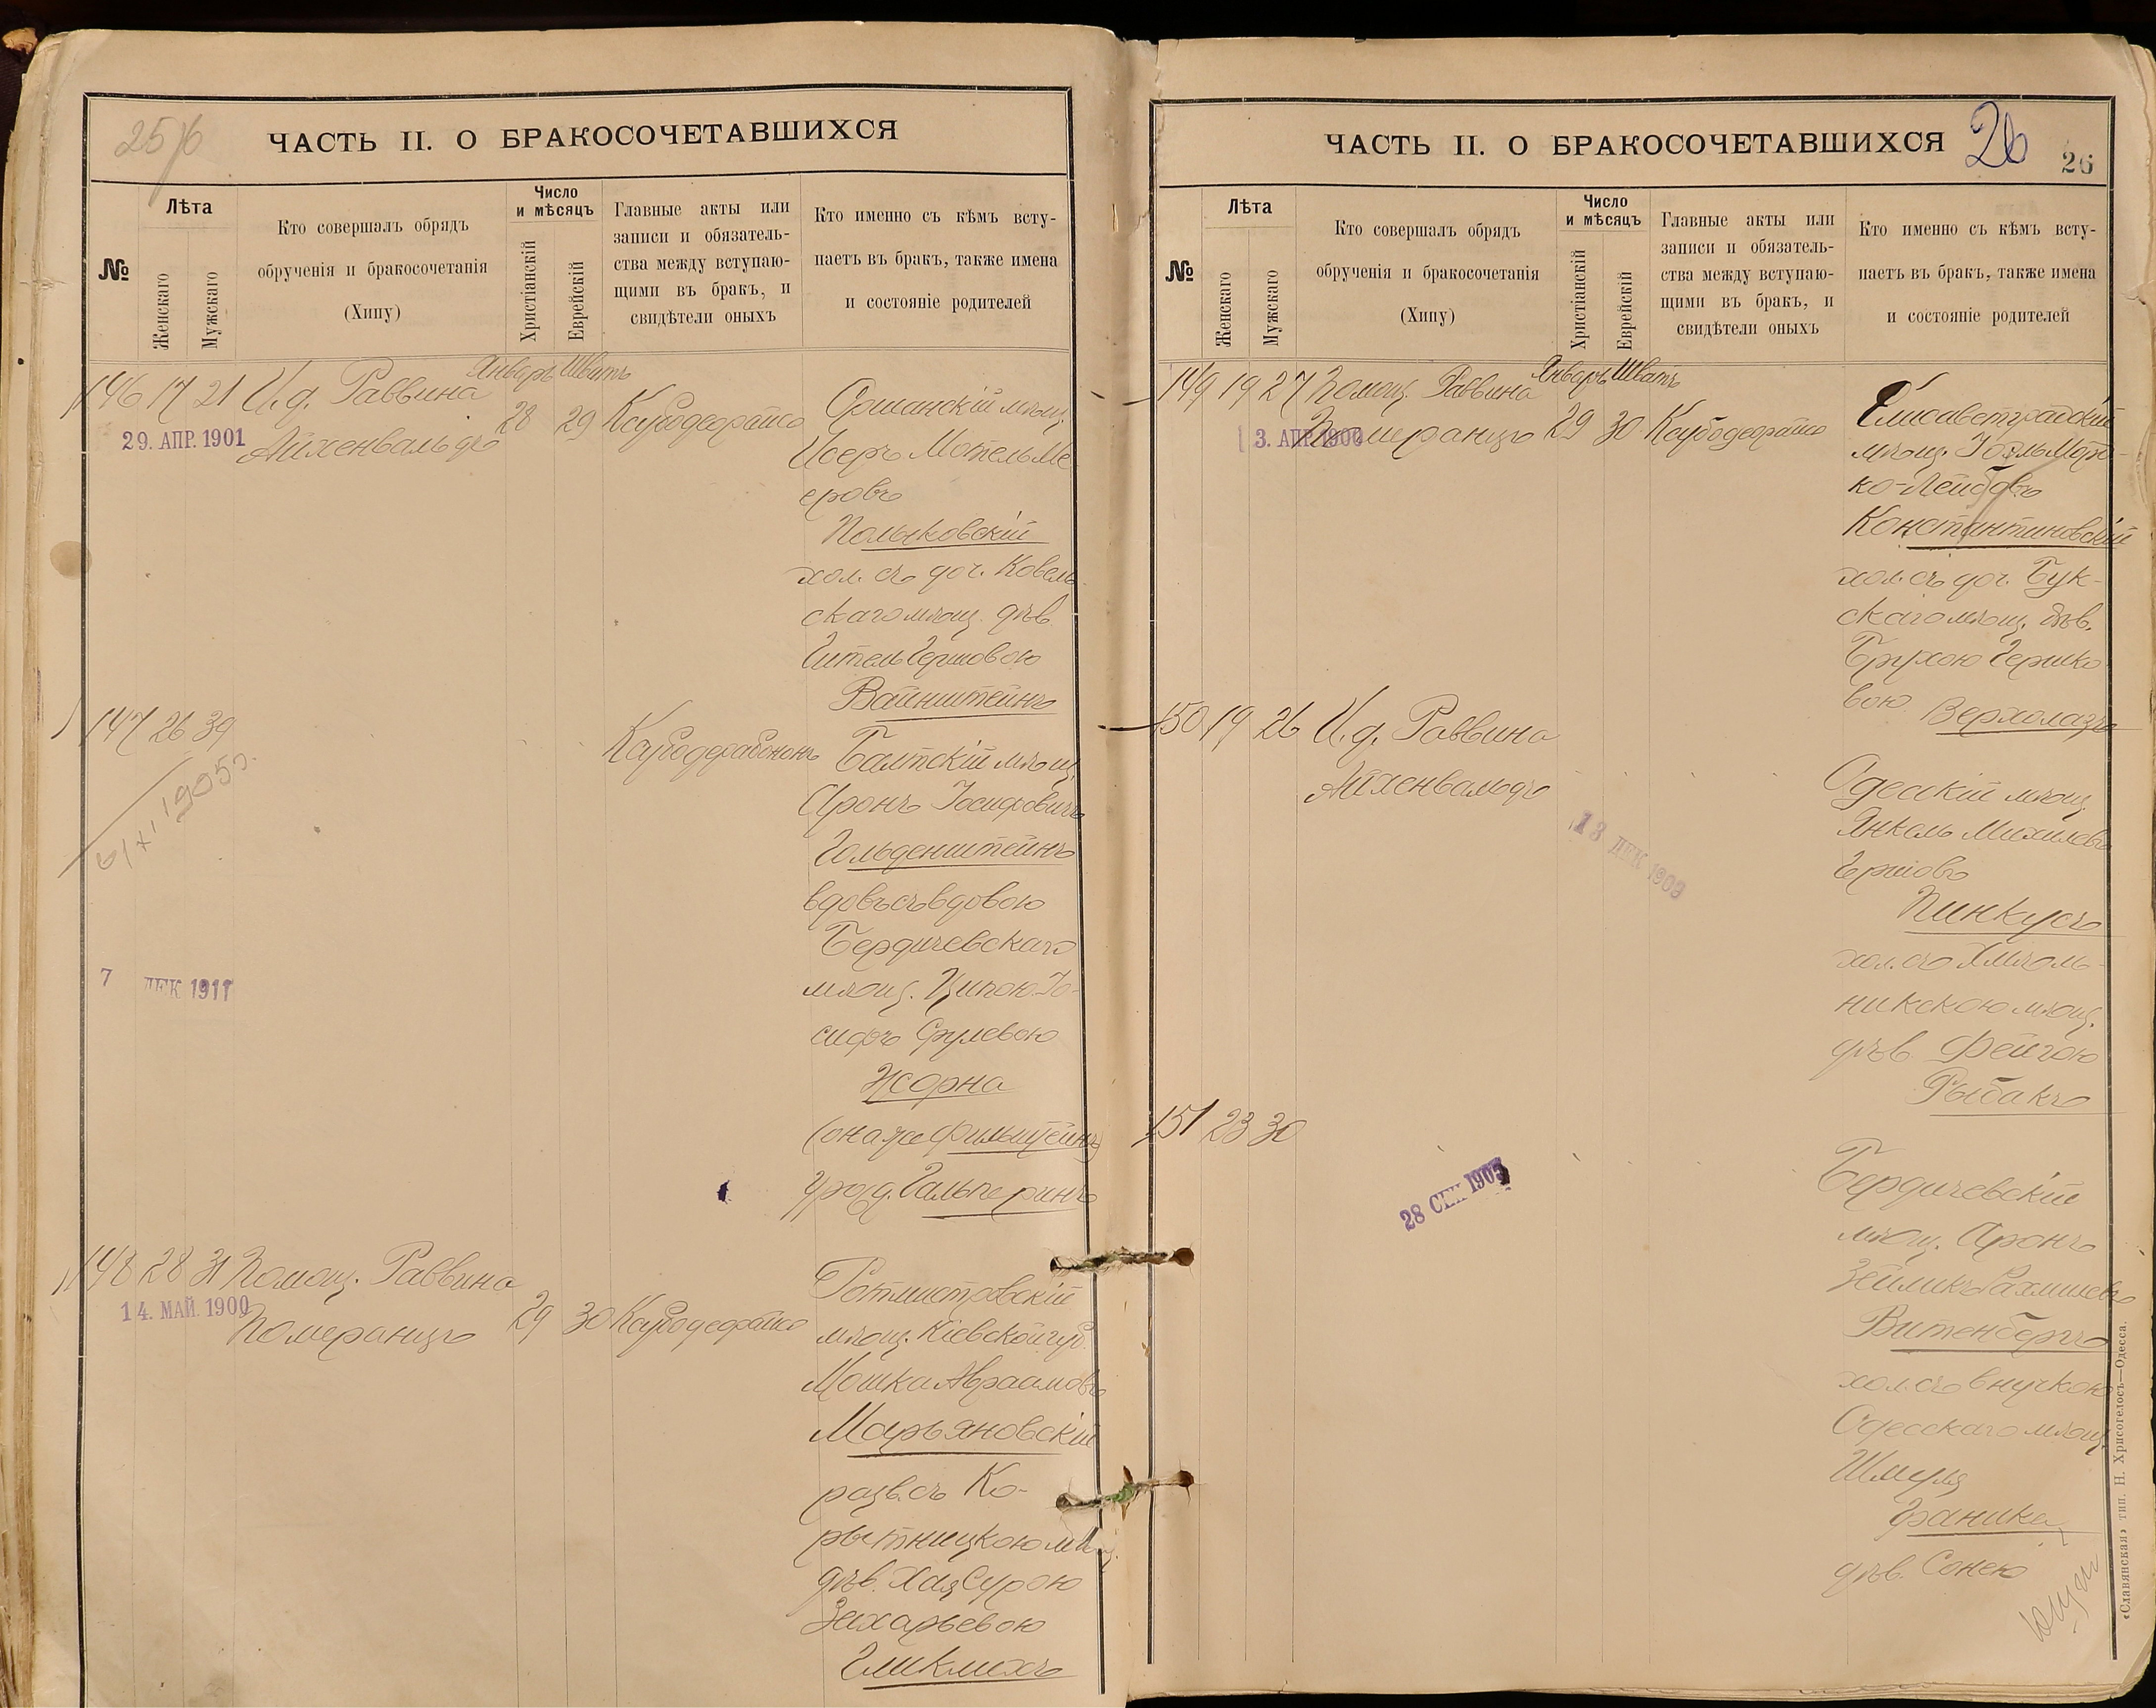 25/6
ЧАСТЬ II. О БРАКОСОЧЕТАВШИХСЯ
№
Лѣта
Женскаго
Мужскаго
Кто совершалъ обрядъ
обрученія и бракосочетанія
(Хипу)
Число
и мѣсяцъ
Христіанскій
Еврейскій
Главные акты или
записи и обязатель-
ства между вступаю-
щими въ бракъ, и
свидѣтели оныхъ
Кто именно съ кѣмъ всту-
паетъ въ бракъ, также имена
и состояніе родителей
146 17 21 И.д. Раввина
Январь Шватъ
29. АПР. 1901
Айхенвальдъ
28 29
Оршанскій мѣщ.
Исеръ Мотель Ме-
еровъ
Полыковскій
хол. съ доч. Ковель-
скаго мѣщ. дѣв.
Гитель Гершовою
Вайнштейнъ
147 26 39
1905
7 ДЕК 1911
Балтскій мѣщ.
Аронъ Іосифовичъ
Гольденштейнъ
вдовъ съ вдовою
Бердичевскаго
мѣщ. Ципою Іо-
сифъ Срулевою
Жорна
(она же Фильштейнъ)
урожд. Гальперинъ
148 28 31 Помощ. Раввина
14. МАЙ. 1900
Померанцъ
29 30
Ротмистровскій
мѣщ. Кіевской губ.
Мошка Авраамовъ
Марьяновскій
разв. съ Ко-
рытницкою мѣщ.
дѣв. Хая Сурою
Захарьевою
Гликлихъ
ЧАСТЬ II. О БРАКОСОЧЕТАВШИХСЯ
26
26
№
Лѣта
Женскаго
Мужскаго
Кто совершалъ обрядъ
обрученія и бракосочетанія
(Хипу)
Число
и мѣсяцъ
Христіанскій
Еврейскій
Главные акты или
записи и обязатель-
ства между вступаю-
щими въ бракъ, и
свидѣтели оныхъ
Кто именно съ кѣмъ всту-
паетъ въ бракъ, также имена
и состояніе родителей
149 19 27 Помощ. Раввина
Январь Шватъ
3. АПР. 1900
Померанцъ
29 30
Елисаветградскій
мѣщ. Іоэль Мор-
ко-Лейбовъ
Константиновскій
хол. съ доч. Бук-
скаго мѣщ. дѣв.
Брухою Гершко-
вою Верхолазъ
150 19 26 И.д. Раввина
Айхенвальдъ
13 ДЕК 1909
Одесскій мѣщ.
Янкель Михилевъ
Гершовъ
Пинкусъ
хол. съ Хмѣль-
никскою мѣщ.
дѣв. Фейгою
Рыбакъ
151 23 30
28 СЕН 1905
Бердичевскій
мѣщ. Аронъ
Зейликъ Рахмилевъ
Витенбергъ
хол. съ внучкою
Одесскаго мѣщ.
Шмуля
Граника
дѣв. Сонею
«Славянская» тип. Н. Хрисогелосъ—Одесса.